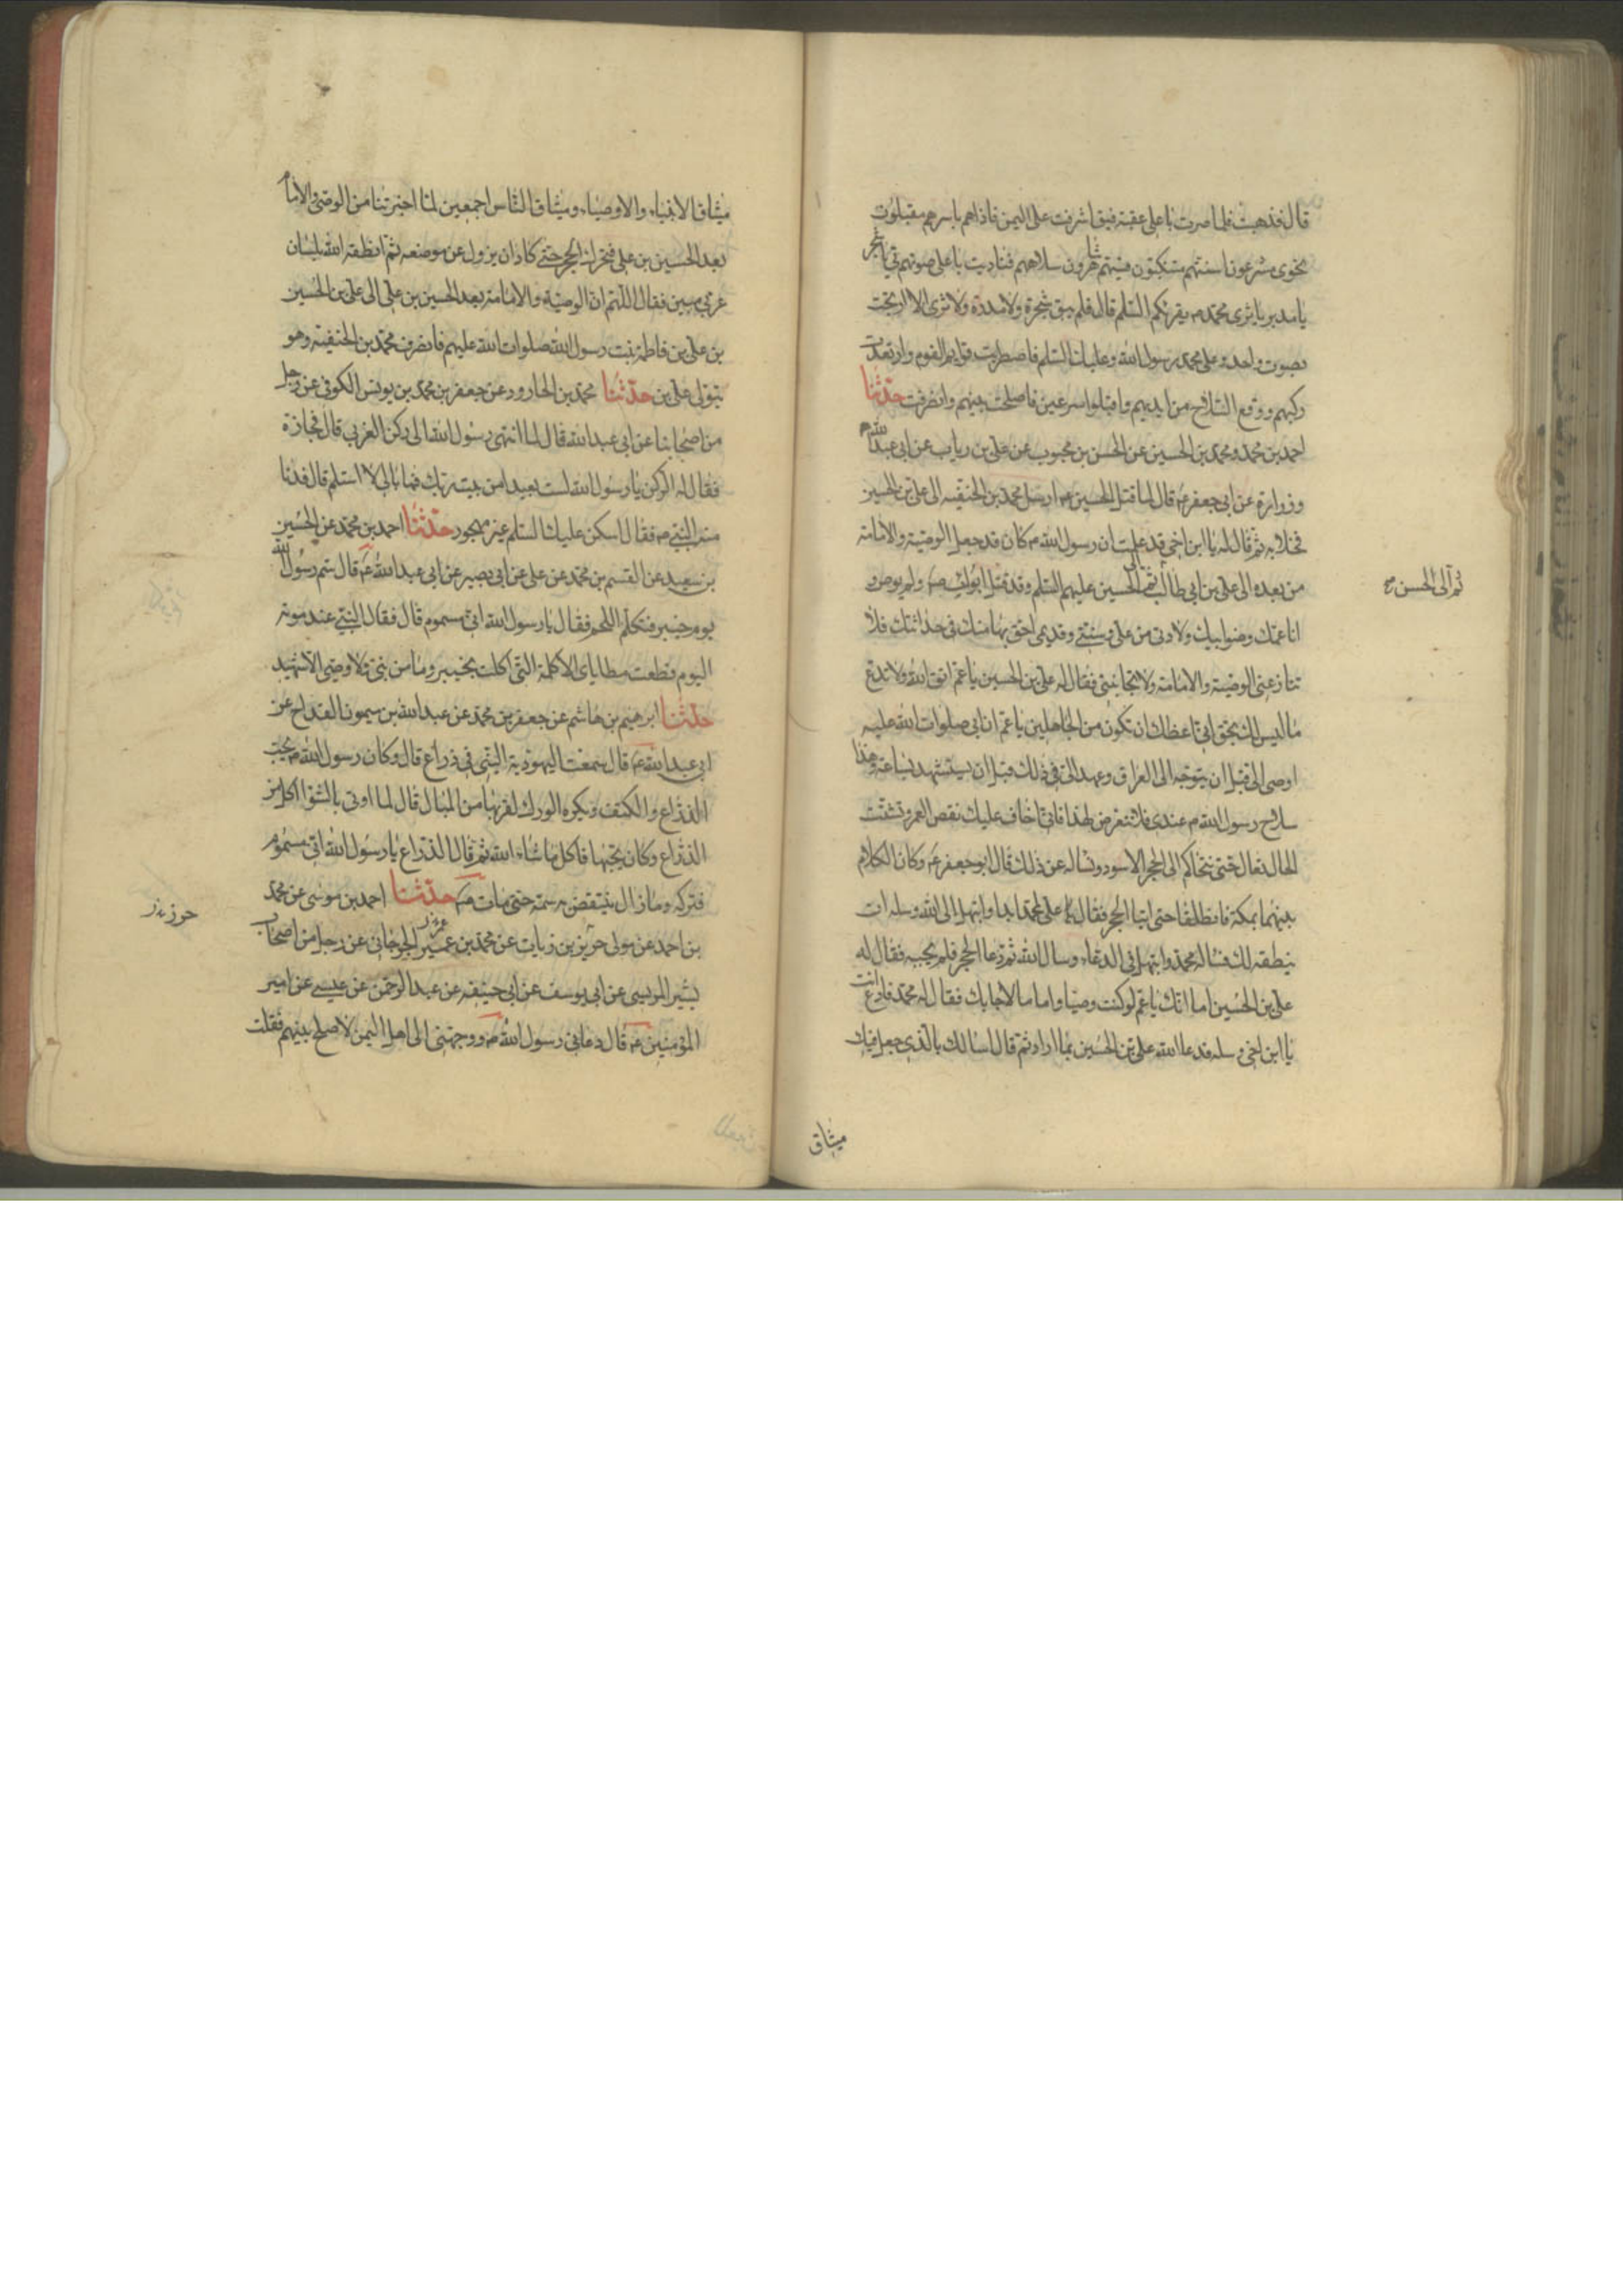 قال فذهبت فلما صرت باعلى عقبة فيق اشرفت على اليمن فاذا هم باسرهم مقبلون
نحوى مشرعون اسنتهم متنكبون قسيهم شاهرون سلاحهم فناديت باعلى صوتى يا شجر
يا مدر يا ثرى محمد ص يقرئكم السلام قال فلم يبق شجرة ولا مدرة ولا ثرى الا ارتجت
بصوت واحد وعلى محمد رسول الله وعليك السلم فاضطربت قوايم القوم وارتعدت
ركبهم ووقع السلاح من ايديهم واقبلوا مسرعين فاصلحت بينهم وانصرفت حدثنا
احمد بن محمد ومحمد بن الحسين عن الحسن بن محبوب عن على بن رياب عن ابى عبد الله ع
وزرارة عن ابى جعفر ع قال لما قتل الحسين ع ارسل محمد بن الحنفيه الى على بن الحسين
فخلا به ثم قال له يا ابن اخى قد علمت ان رسول الله ص كان قد جعل الوصية والامامة
من بعده الى على بن ابى طالب ثم الى الحسين عليهم السلم وقد قتل ابوك ص ولم يوص و
ثم الى الحسن ع
انا عمك وصنو ابيك وولادتى من على ع وسنتى وقديمى احق بها منك فى حداثتك فلا
تنازعنى الوصية والامامة ولا تجانبنى فقال له على بن الحسين يا عم اتق الله ولا تدع
ما ليس لك بحق انى اعظك ان تكون من الجاهلين يا عم ان ابى صلوات الله عليه
اوصى الى قبل ان يتوجه الى العراق وعهد الى فى ذلك قبل ان يستشهد بساعة وهذا
سلاح رسول الله ص عندى فلا تتعرض لهذا فانى اخاف عليك نقص العمر وتشتت
الحال تعال حتى نتحاكم الى الحجر الاسود ونساله عن ذلك قال ابو جعفر ع وكان الكلام
بينهما بمكة فانطلقا حتى اتيا الحجر فقال على لمحمد ابدا وابتهل الى الله وسله ان
ينطقه لك فساله محمد وابتهل فى الدعاء وسال الله ثم دعا الحجر فلم يجبه فقال له
على بن الحسين اما انك يا عم لو كنت وصيا واماما لاجابك فقال له محمد فادع انت
يا ابن اخى وسله فدعا الله على بن الحسين بما اراد ثم قال اسالك بالذى جعل فيك
ميثاق
ميثاق الانبياء والاوصياء وميثاق الناس اجمعين لما اخبرتنا من الوصى والامام
بعد الحسين بن على فتحرك الحجر حتى كاد ان يزول عن موضعه ثم انطقه الله بلسان
عربى مبين فقال اللهم ان الوصية والامامة بعد الحسين بن على الى على بن الحسين
بن على بن فاطمة بنت رسول الله صلوات الله عليهم فانصرف محمد بن الحنفيه وهو
يتولى على بن حدثنا محمد بن الجارود عن جعفر بن محمد بن يونس الكوفى عن رجل
من اصحابنا عن ابى عبد الله قال لما انتهى رسول الله الى ركن الغربى قال فجازه
فقال له الركن يا رسول الله الست بعيدا من بيت ربك فما بالى لا استلم قال فدنا
منه النبى ص فقال اسكن عليك السلم غير مهجور حدثنا احمد بن محمد عن الحسين
بن سعيد عن القسم بن محمد عن على عن ابى بصير عن ابى عبد الله ع قال سم رسول الله
يوم خيبر فتكلم اللحم فقال يا رسول الله انى مسموم قال فقال النبى عند موته
اليوم قطعت مطاياى الاكلة التى اكلت بخيبر وما من نبى ولا وصى الا شهيد
حدثنا ابرهيم بن هاشم عن جعفر بن محمد عن عبد الله بن ميمون القداح عن
ابى عبد الله ع قال سمعت اليهودية النبى فى ذراع قال وكان رسول الله ص يحب
الذراع والكتف ويكره الورك لقربها من المبال قال لما اوتى بالشوا اكل من
الذراع وكان يحبها فاكل ما شاء الله ثم قال الذراع يا رسول الله انى مسموم
فتركه وما زال ينتقض به سمه حتى مات ص حدثنا احمد بن موسى عن محمد
بن احمد عن مولى حريز بن زيات عن محمد بن عمير الجرجانى عن رجل من اصحاب
بشير المريسى عن ابى يوسف عن ابى حنيفه عن عبد الرحمن عن عيسى عن امير
المؤمنين ع قال دعانى رسول الله ص ووجهنى الى اهل اليمن لاصلح بينهم فقلت